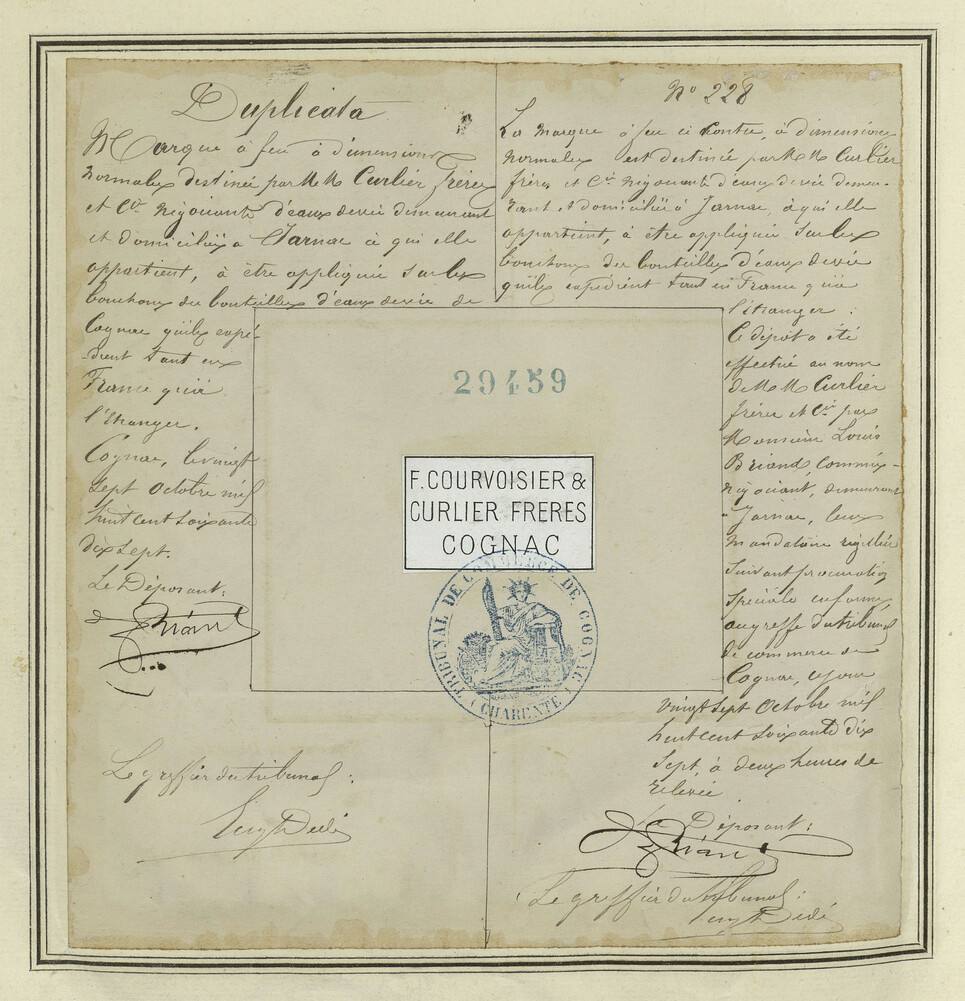 Duplicata
Marque à feu à dimensions
normales destinée par M.M. Curlier frères
et Cie négociants d'eaux de vie demeurant
et domiciliés à Jarnac à qui elle
appartient, à être appliquée sur les
bouchons des bouteilles d'eaux de vie de
Cognac qu'ils expé-
-dient tant en
France qu'à
l'étranger.
Cognac, le vingt
sept Octobre mil
huit cent soixante
dix sept.
Le Déposant:
Briand
Le greffier du tribunal:
No 228
La marque à feu ci contre, à dimensions
normales est destinée par M.M. Curlier
frères et Cie négociants d'eaux de vie demeu-
rant et domiciliés à Jarnac, à qui elle
appartient, à être appliquée sur les
bouchons des bouteilles d'eaux de vie
qu'ils expédient tant en France qu'à
l'étranger.
Ce dépôt a été
effectué au nom
de M.M. Curlier
frères et Cie par
Monsieur Louis
Briand, Commis-
négociant, demeurant
à Jarnac, leur
mandataire régulier
suivant procuration
spéciale
au greffe du tribunal
de commerce de
Cognac, ce jour
vingt sept Octobre mil
huit cent soixante dix
sept, à deux heures de
relevée
Le Déposant:
Briand
Le greffier du tribunal:
29459
F. COURVOISIER &
CURLIER FRERES
COGNAC
TRIBUNAL DE COMMERCE DE COGNAC
(CHARENTE)